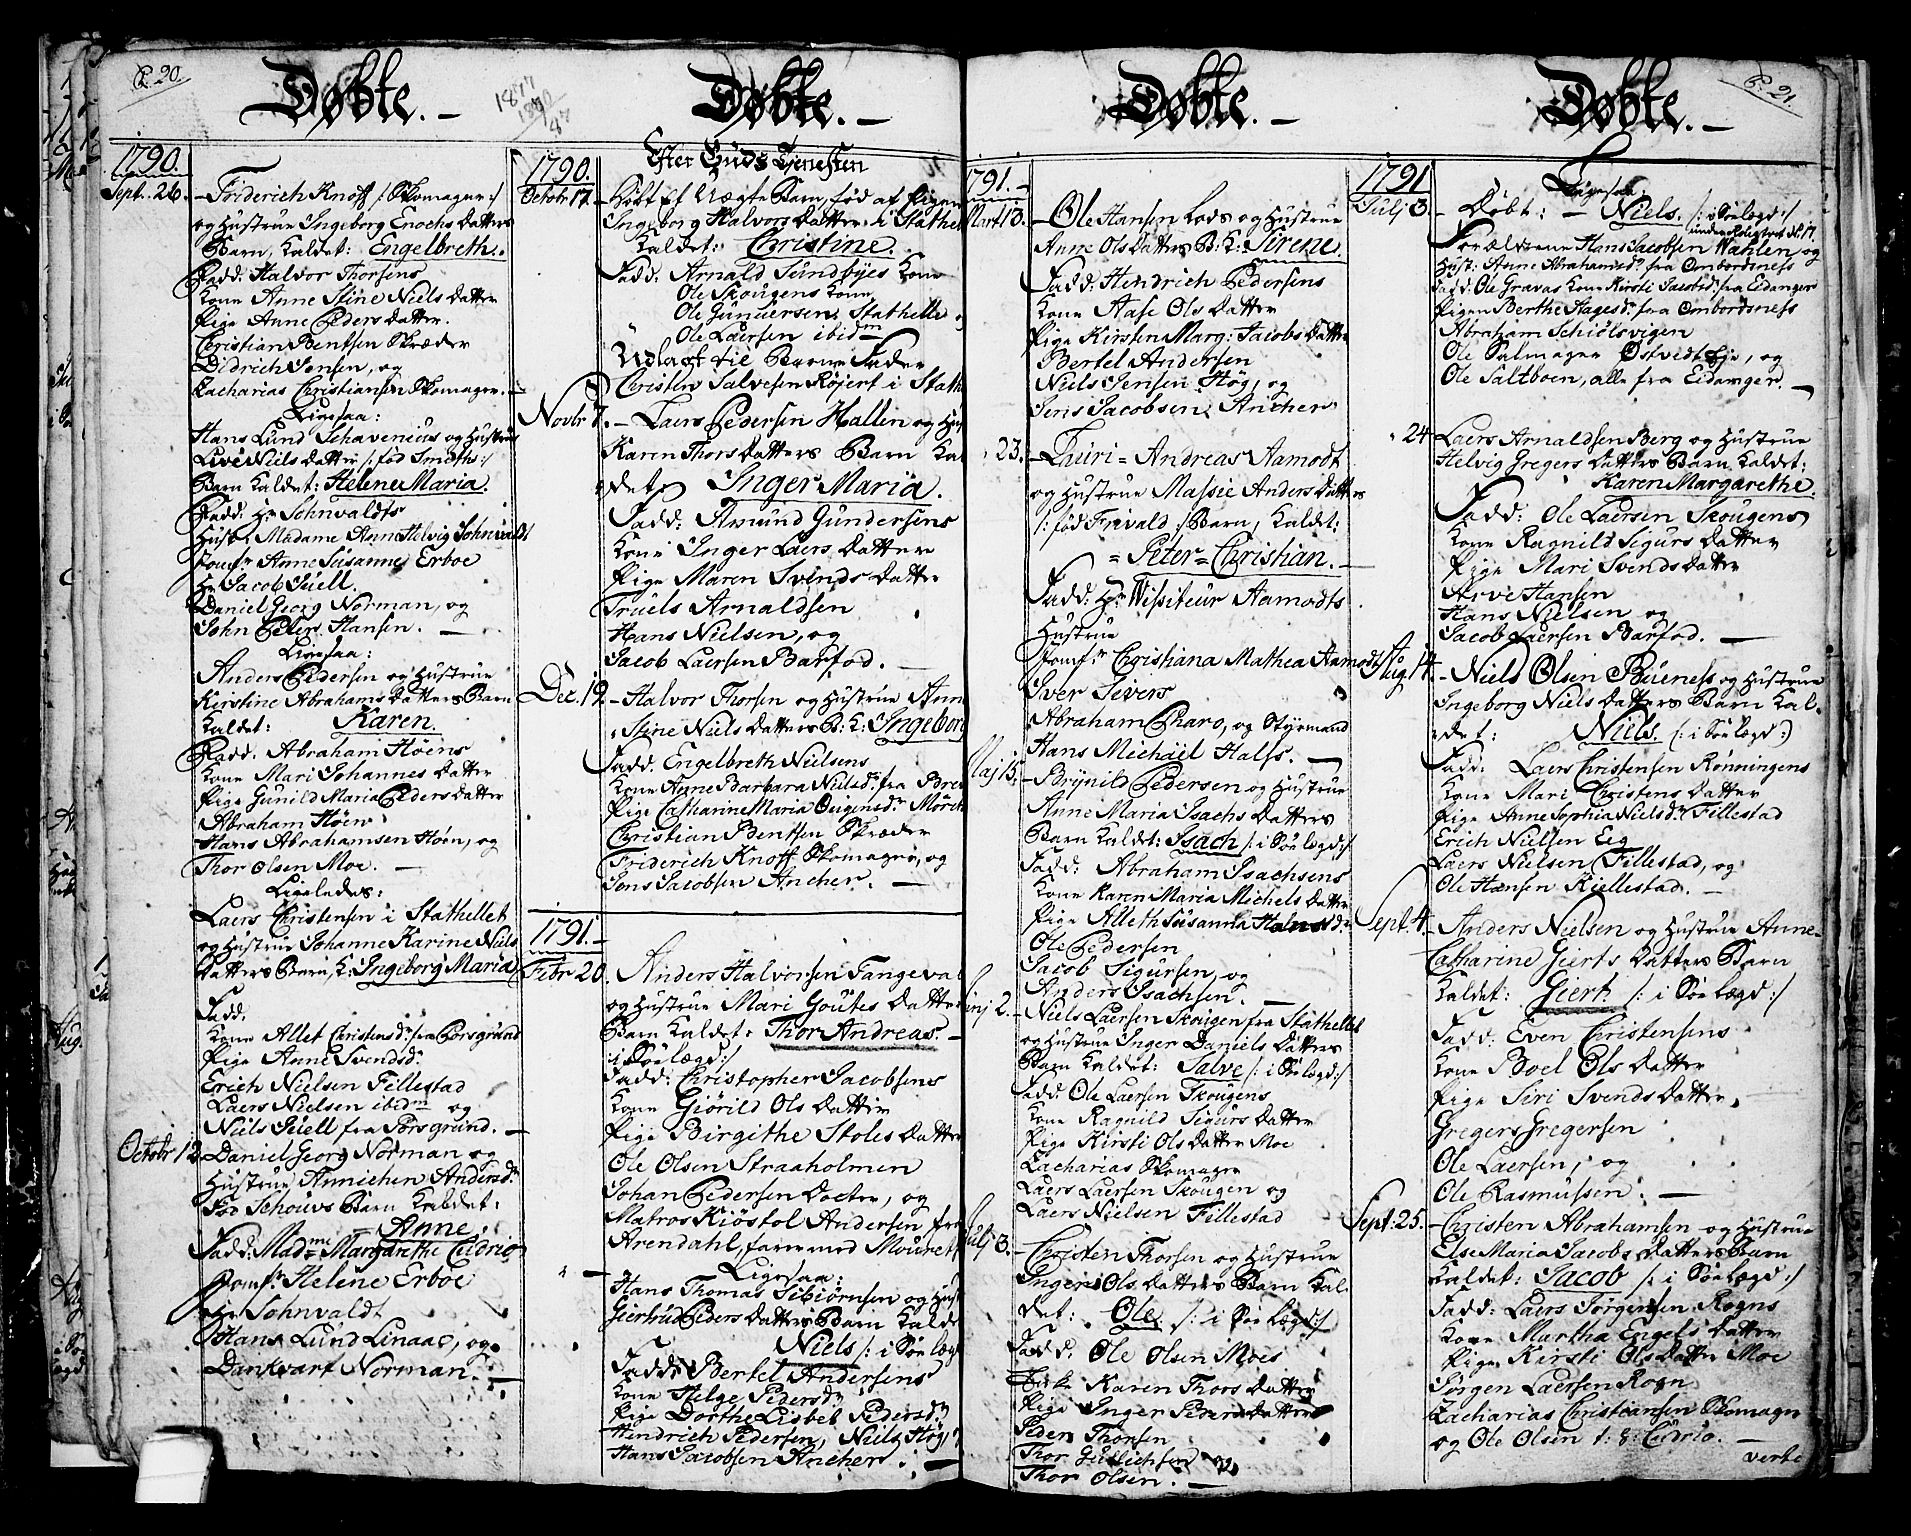 P. 20.
Døbte.
1790.
Sept. 26.
Friderich Knoff /: Skomager :/
og Hustrue Ingeborg Enochs Datters
Barn, kaldet: Engelbreth.
Fadd: Halvor Thorsens
Kone Anne Stine Niels Datter
Pige Anne Peders Datter.
Christian Bentsen Skræder
Didrich Jensen, og
Zacharias Christiansen Skomager.
Ligesaa:
Hans Lund Schavenius og Hustrue
Live Niels Datter /: fød Smeths :/
Barn kaldet: Helene Maria.
Fadd: Hr Sohnvaldts
Hust. Madame Anne Helvig Sohnvaldt
Jomfr Anne Susanne Erboe
Hr Jacob Juell.
Daniel Georg Norman, og
John Peter Hansen.
Ligesaa:
Anders Pedersen og Hustrue
Kirstine Abrahams Datters Barn
kaldet: Karen.
Fadd: Abraham Høens
Kone Mari Johannes Datter
Pige Gunild Maria Peders Datter
Abraham Høen
Hans Abrahamsen Høen, og
Thor Olsen Moe.
Ligeledes:
Laers Christensen i Stathellet
og Hustrue Johanne Karine Niels
Datters Barn, K: Ingeborg Maria
Fadd.
Kone Allet Christensdr fra Porsgrund
Pige Anne Svendsdr
Erich Nielsen Fillestad
Laers Nielsen ibidm og
Niels Juell fra Porsgrund.
Octobr 12.
Daniel Georg Norman og
Hustrue Annichen Andersdr
Fød Schouvs Barn kaldet:
Anne.
Fadd. Madme Margarethe Cudrio
Jomfr Helene Erboe
Hr Sohnvaldt
Hans Lund Linaae, og
Dankvart Norman.
Døbte.
1877
1790.
Octobr 17.
Efter Guds Tjenesten
Døbt Et Uægte Barn, fød af Pigen
Ingeborg Halvors Datter i Stathel
kaldet: Christine.
Fadd: Arnald Sundbyes Kone
Ole Skougens Kone
Ole Gundersen, Stathelle
Ole Laersen ibidm
Udlagt til Barne Fader
Christen Salvesen Røjert i Stath
Novbr 7.
Laers Pedersen Hallen og Hu
Karen Thors Datters Barn Kal
det: Inger Maria.
Fadd: Amund Gundersens
Kone Inger Laers Datter
Pige Maren Svends Datter
Truels Arnaldsen
Hans Nielsen, og
Jacob Laersen Barfod.
Dec. 19
Halvor Thorsen og Hustrue Anne
Stine Niels Datters B: K: Ingeborg
Fadd. Engelbreth Nielsens
Kone Anne Barbara Nielsdr fra Bre
Pige Catharine Maria Ougensdr Mørch
Christian Bentsen Skræder
Friderich Knoff Skomager, og
Jens Jacobsen Ancher.
1791.
Febr 20.
Anders Halvorsen Tangeval
og Hustrue Mari Goutes Datter
Barn kaldet: Thor Andreas.
/: i Søe Lægd :/
Fadd: Christopher Jacobsens
Kone Giørild Ols Datter
Pige Birgithe Stoles Datter
Ole Olsen Straaholmen
Johan Pedersen Docter, og
Matros Kiøstol Andersen fra
Arendahl, farer med Mouret
Ligesaa:
Hans Thomas Isbiørnsen og Hust
Giertrud Peders Datters Barn kalde
Niels /: i Søe Lægd
Fadd: Bertel Andersens
Kone Helge Pedersdr
Pige Dorthe Lisbet Pedersdr
Hindrich Pedersen, Niels Høg,
Hans Jacobsen Ancher.
Døbte.
1791.
Mart 13.
Ole Hansen Lods og Hustrue
Anne Ols Datters B: K: Sirene.
Fadd: Hendrich Pedersens
Kone Aase Ols Datter
Pige Kirsten Marg: Jacobs Datter
Bertel Andersen
Niels Jensen Høg, og
Jens Jacobsen Ancher
23.
Tuiri = Andreas Aamodt
og Hustrue Massie Anders Datters
/: fød Frivald :/ Barn, kaldet:
= Peter = Christian.
Fadd: Hr Wissiteur Aamodts
Hustrue
Jomfr Christiana Mathea Aamodt
Iver Sivers
Abraham Charo, og Styrmand
Hans Michael Halss.
Maj 15.
Brynild Pedersen og Hustrue
Anne Maria Isachs Datters
Barn kaldet: Isach /: i Søe Lægd :/
Fadd: Abraham Isachsens
Kone Karen Maria Michels Datter
Pige Alleth Susanna
Ole Pedersen
Jacob Sigursen, og
Anders Isachsen.
Junj 2.
Niels Laersen Skougen fra Stathellet
og Hustrue Inger Daniels Datters
Barn kaldet: Salve /: i Søe Lægd :/
Fadd: Ole Laersen Skougens
Kone Ragnild Sigurs Datter
Pige Kirsti Ols Datter Moe
Zacharias Skomager
Laers Laersen Skougen og
Laers Nielsen Fillestad
Julj 3.
Christen Thorsen og Hustrue
Inger Ols Datters Barn Kal
det: Ole. /: i Søe Lægd :/
Fadd: Ole Olsen Moes
Karen Thors Datter
Pige Inger Peders Datter
Peder Thorsen
Thor Gullichsen og
Thor Olsen.
P. 21.
Døbte.
1791
Julj 3.
Ligesaa:
Døbt: - Niels. /: i Søe Lægd :/
under No 17
Forældrene Hans Jacobsen Wahlen og
Hust: Anne Abrahamsdr fra Ombordsness
Fadd: Ole Gravas Kone Kirsti Jacobsdr fra Eidanger
Pigen Berthe Hagesdr fra Ombordsness
Abraham Schiølsvigen
Ole Salmager Østvedt Eje, og
Ole Saltboen, alle fra Eidanger.
24
Laers Arnaldsen Berg og Hustrue
Helvig Gregers Datters Barn kaldet:
Karen Margarethe.
Fadd: Ole Laersen Skougens
Kone Ragnild Sigurs Datter
Pige Mari Svends Datter
Arve Hansen
Hans Nielsen og
Jacob Laersen Barfod.
Aug 14.
Niels Olsen Bueness og Hustrue
Ingeborg Niels Datters Barn Kal-
det: Niels. /: i Søe Lægd :/
Fadd: Laers Christensen Rønningens
Kone Mari Christens Datter
Pige Anne Sophia Nielsdr Fillestad
Erich Nielsen Eeg
Laers Nielsen Fillestad, og
Ole Hansen Kiellestad.
Sept. 4.
Anders Nielsen og Hustrue Anne-
Catharine Gierts Datters Barn
kaldet: Giert. /: i Søe Lægd :/
Fadd: Even Christensens
Kone Boel Ols Datter
Pige Siri Svends Datter,
Gregers Gregersen
Ole Laersen, og
Ole Rasmussen.
Sept: 25.
Christen Abrahamsen og Hustrue
Else Maria Jacobs Datters Barn
kaldet: Jacob /: i Søe Lægd :/
Fadd: Laers Jørgensen Rogns
Kone Martha Engels Datter
Pige Kirsti Ols Datter Moe
Jørgen Laersen Rogn
Zacharias Christiansen Skomager
og Ole Olsen t: 8: Cudrio.
verte